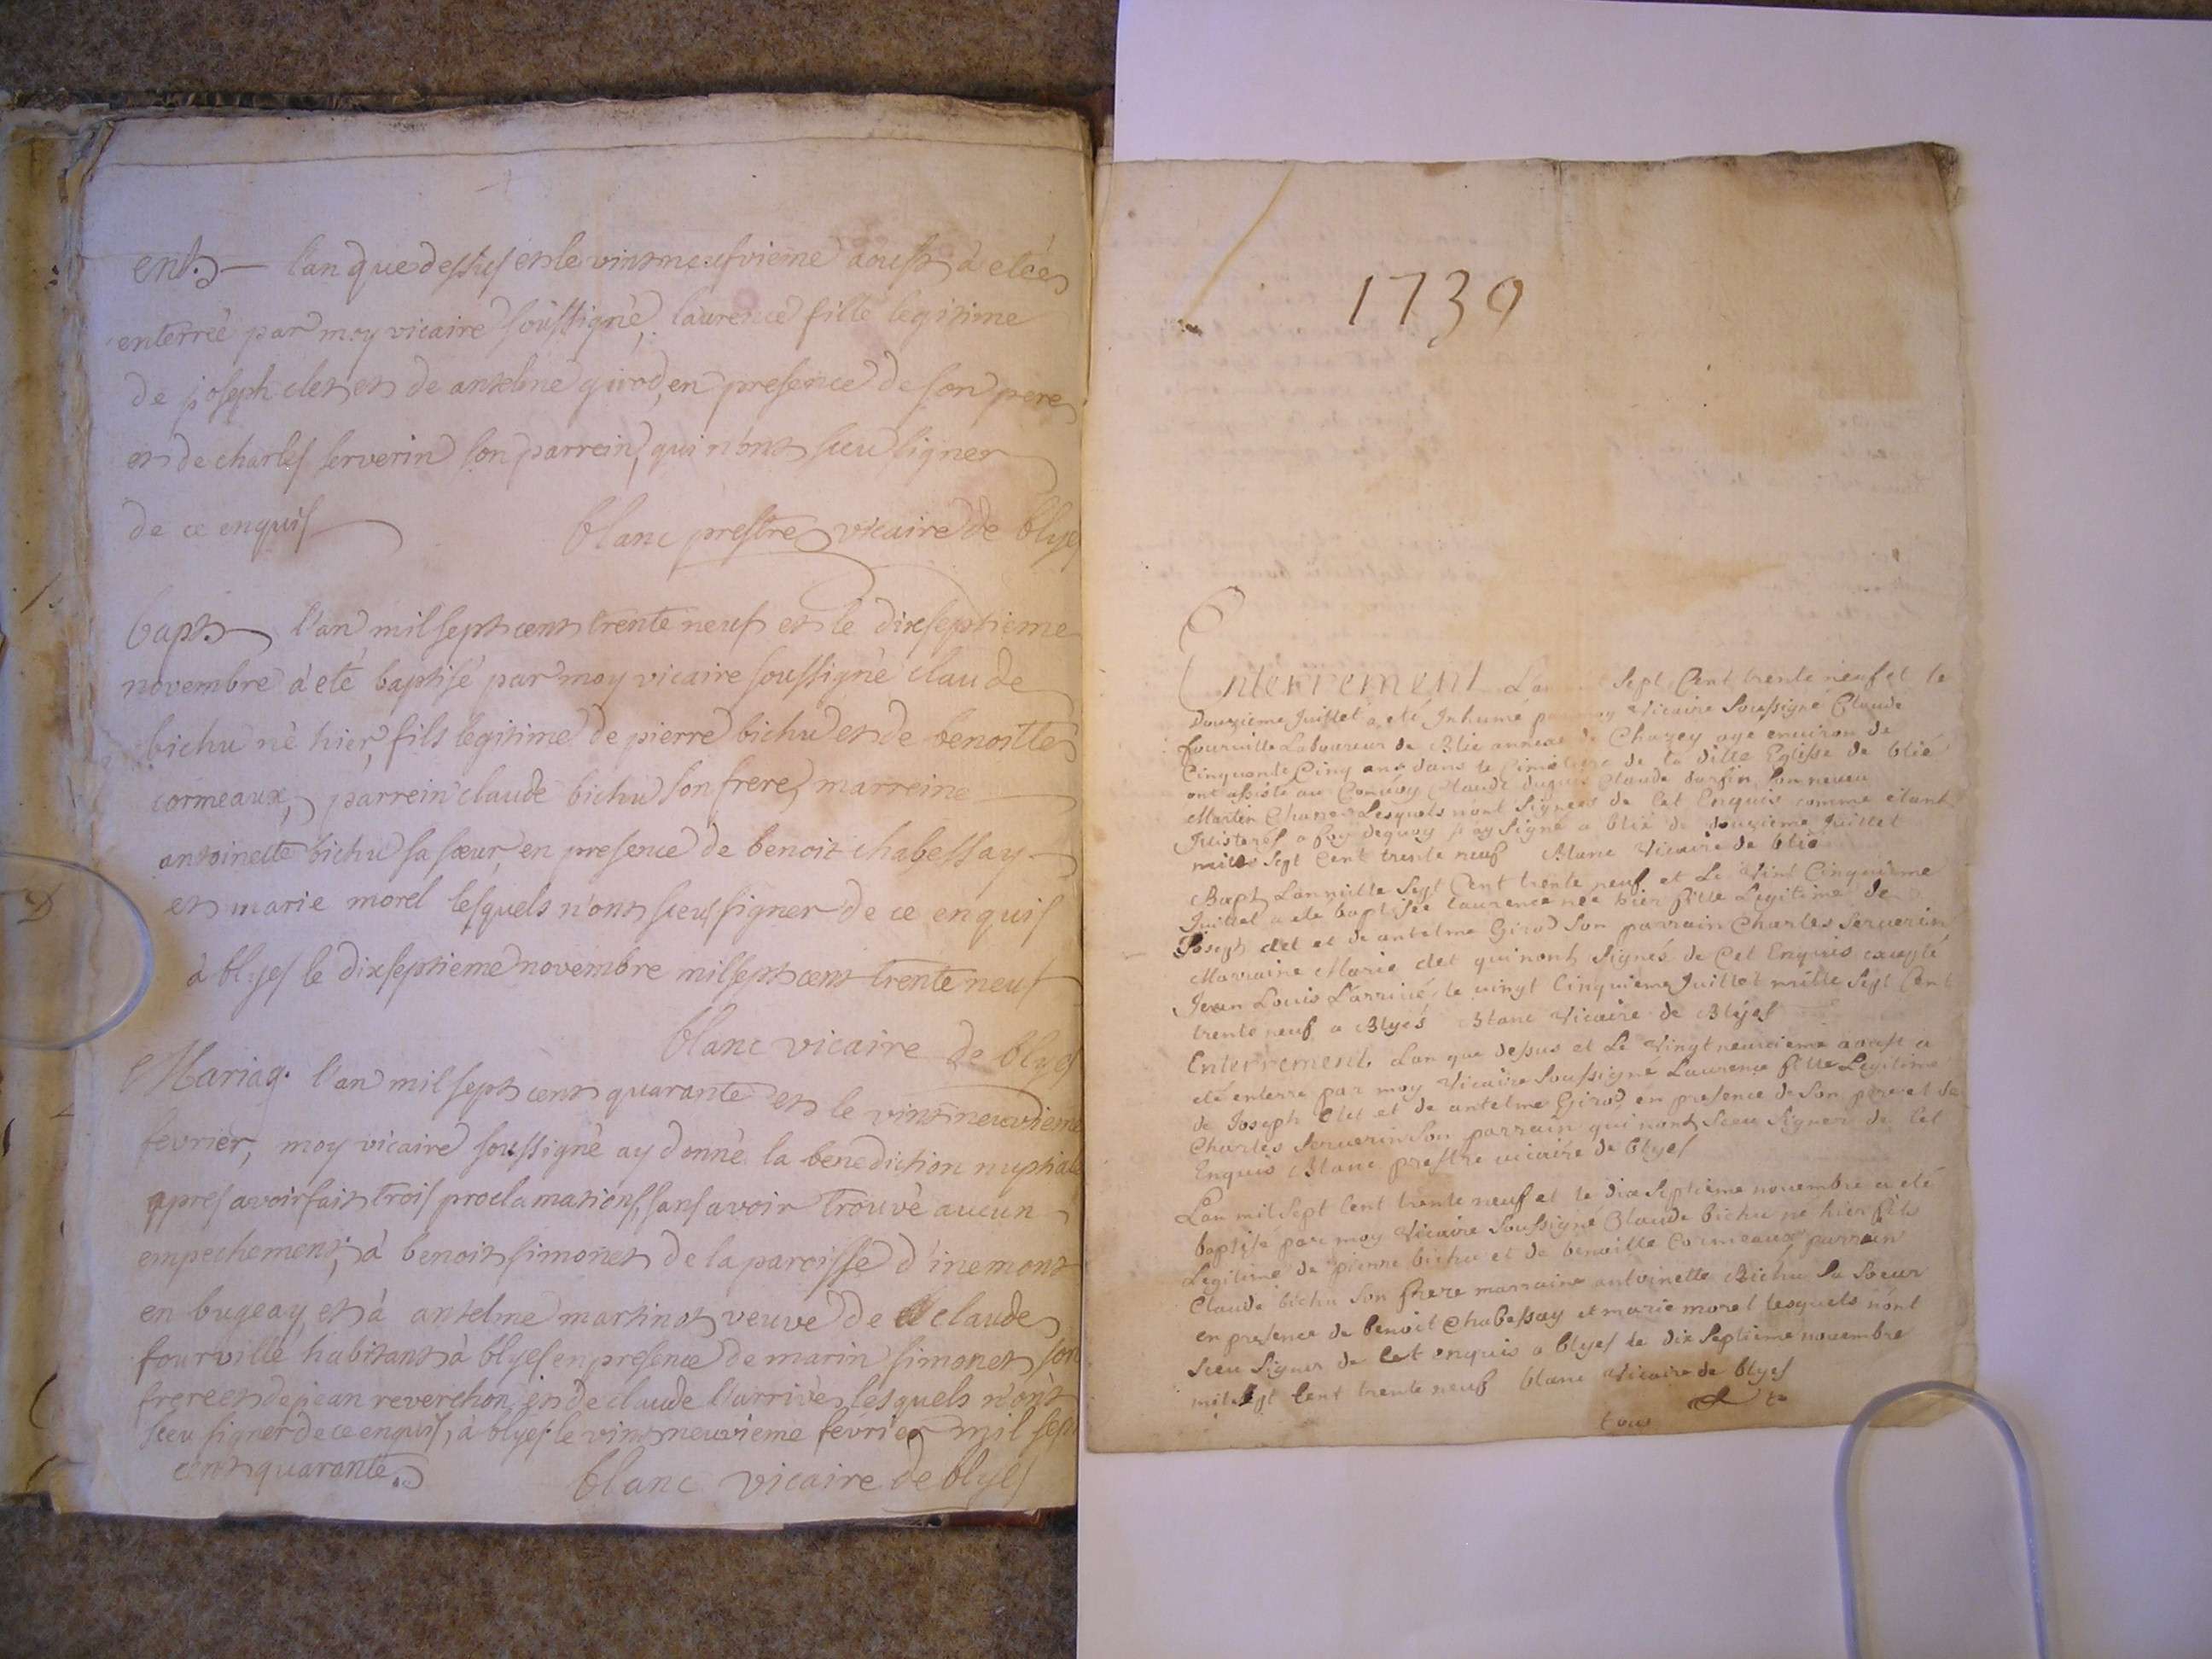 ent. — l'an que dessus et le vint neufvieme aoust à eté
enterrée par moy vicaire soussigné, laurence fille legitime
de joseph clet et de antelme girod, en presence de son pere
et de charles serverin son parrein, qui n'ont sceu signer
de ce enquis
blanc prestre vicaire de blyes
bapt. l'an mil sept cent trente neuf et le dixseptieme
novembre à eté baptisé par moy vicaire soussigné claude
bichu né hier, fils legitime de pierre bichu et de benoitte
cormeaux, parrein claude bichu son frere, marreine
antoinette bichu sa sœur, en presence de benoit chabessay
et marie morel lesquels n'ont sceu signer de ce enquis
à blyes le dixseptieme novembre mil sept cent trente neuf
blanc vicaire de blyes
Mariag. l'an mil sept cent quarante et le vint neuvieme
fevrier, moy vicaire soussigné ay donné la benediction nuptiale
apres avoir fait trois proclamations, sans avoir trouvé aucun
empechement, à benoit simonet de la paroisse d'inemont
en bugeay, et à antelme martinot veuve de claude
fourville habitant à blyes en presence de marin simonet son
frere et de jean reverchon, et de claude l'arrivé, lesquels n'ont
sceu signer de ce enquis, à blyes le vint neuvieme fevrier mil sept
cent quarante.
blanc vicaire de blyes
1739
Enterrement L'an sept Cent trente neuf et le
douzieme Juillet a eté Inhumé par moy Vicaire Soussigné Claude
fourville Laboureur de Blie annexe de Chazey age environ de
Cinquante Cinq ans dans le Cimetiere de la ditte Eglisse de blié
ont assisté au Convoy Claude duguet Claude son neveu
Martin Lesquels n'ont Signees de Cet Enquis comme étant
Illisterés a foy dequoy j'ay Signé a blié de douzieme Juillet
mille Sept Cent trente neuf Blanc Vicaire de blié
Bapt. L'an mille Sept Cent trente neuf et Le Vint Cinquieme
Juillet a ete baptisée laurence née hier fille Legitime de
Joseph clet et de antelme Girod Son parrain Charles Serverin
Marraine Marie clet qui n'ont Signés de Cet Enquis excepté
Jean Louis L'arrivé, le vingt Cinquieme Juillet mille Sept Cent
trente neuf a Blyes Blanc Vicaire de Blyes
Enterrement. L'an que dessus et Le Vingt neuvieme aoust a
eté enterre par moy Vicaire Soussigné Laurence fille Legitime
de Joseph Clet et de antelme Girod, en presence de Son pere et de
Charles Serverin Son parrain qui n'ont Sceu Signer de Cet
Enquis Blanc prestre vicaire de blyes
L'an mil Sept Cent trente neuf et le dix Septieme novembre a eté
baptisé par moy Vicaire Soussigné Claude bichu né hier fils
Legitime de pierre bichu et de benoitte Cormeaux parrain
Claude bichu Son frere marraine antoinette Bichu Sa Soeur
en presence de benoit Chabessay et marie morel lesquels n'ont
Sceu Signer de Cet enquis a blyes le dix Septieme novembre
mil Sept Cent trente neuf blanc Vicaire de blyes